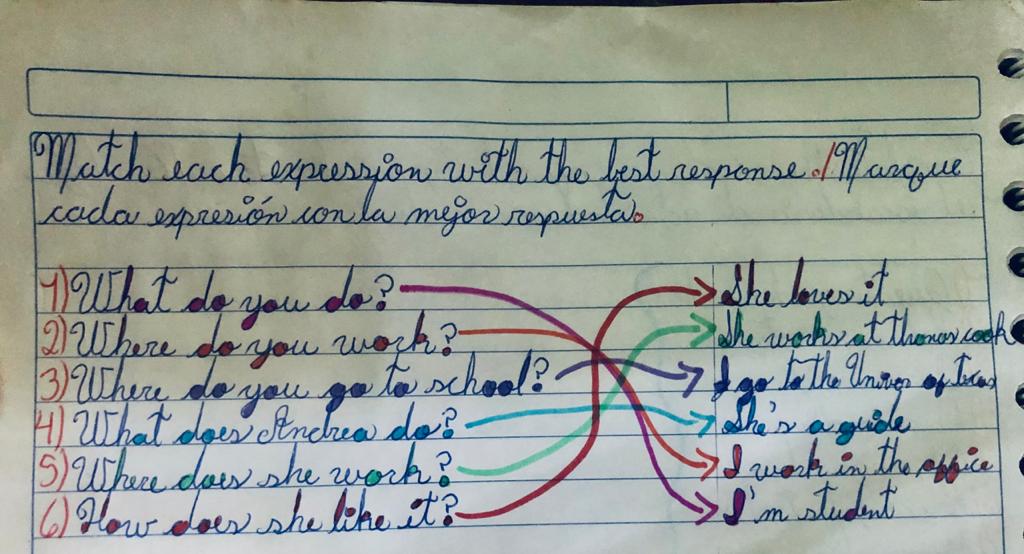 Match each expression with the best response./Marque
cada expresión con la mejor respuesta.
1) What do you do? She loves it
2) Where do you work? She works at thomas cook
3) Where do you go to school? I go to the Univer of texas
4) What does Andrea do? She's a guide
5) Where does she work? I work in the office
6) How does she like it? I'm student